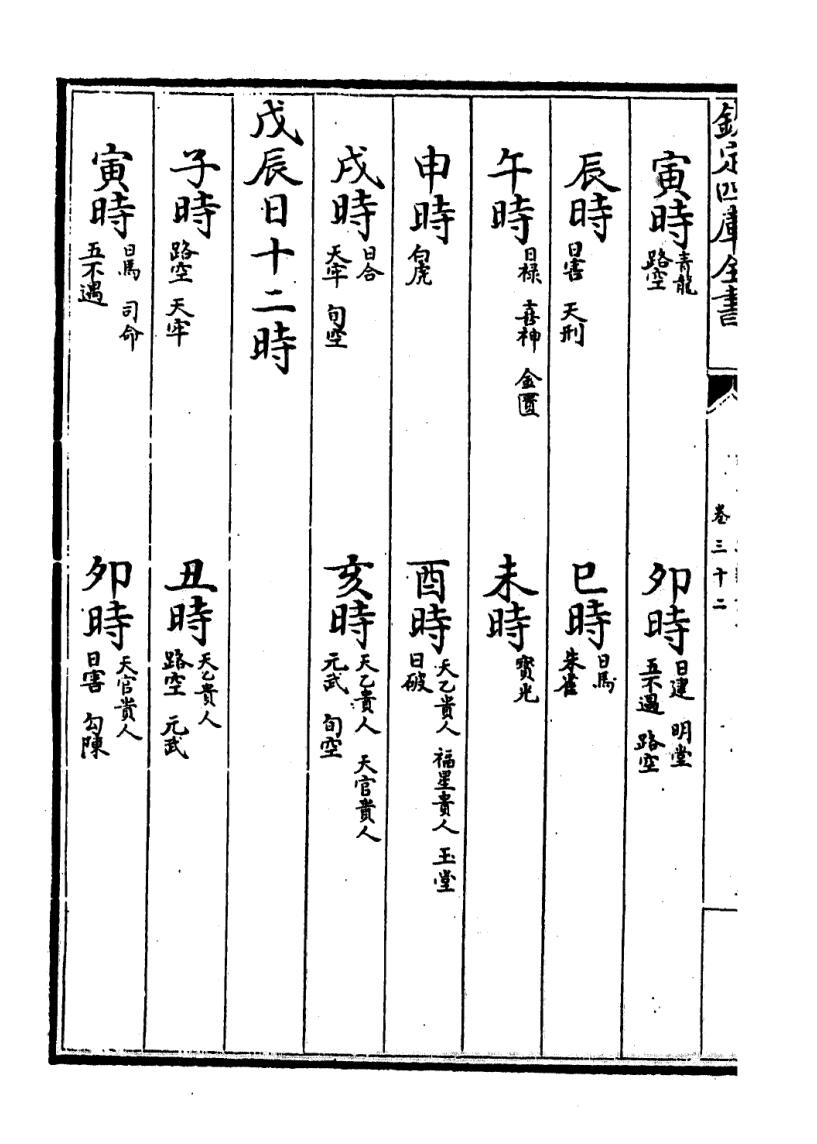 欽定四庫全書
卷三十二
寅時 青龍 路空
卯時 日建 明堂 五不遇 路空
辰時 日害 天刑
巳時 日馬 朱雀
午時 日祿 喜神 金匱
未時 寳光
申時 白虎
酉時 天乙貴人 福星貴人 玉堂 日破
戌時 日合 天牢 旬空
亥時 天乙貴人 天官貴人 元武 旬空
戊辰日十二時
子時 路空 天牢
丑時 天乙貴人 路空 元武
寅時 日馬 司命 五不遇
卯時 天官貴人 日害 勾陳